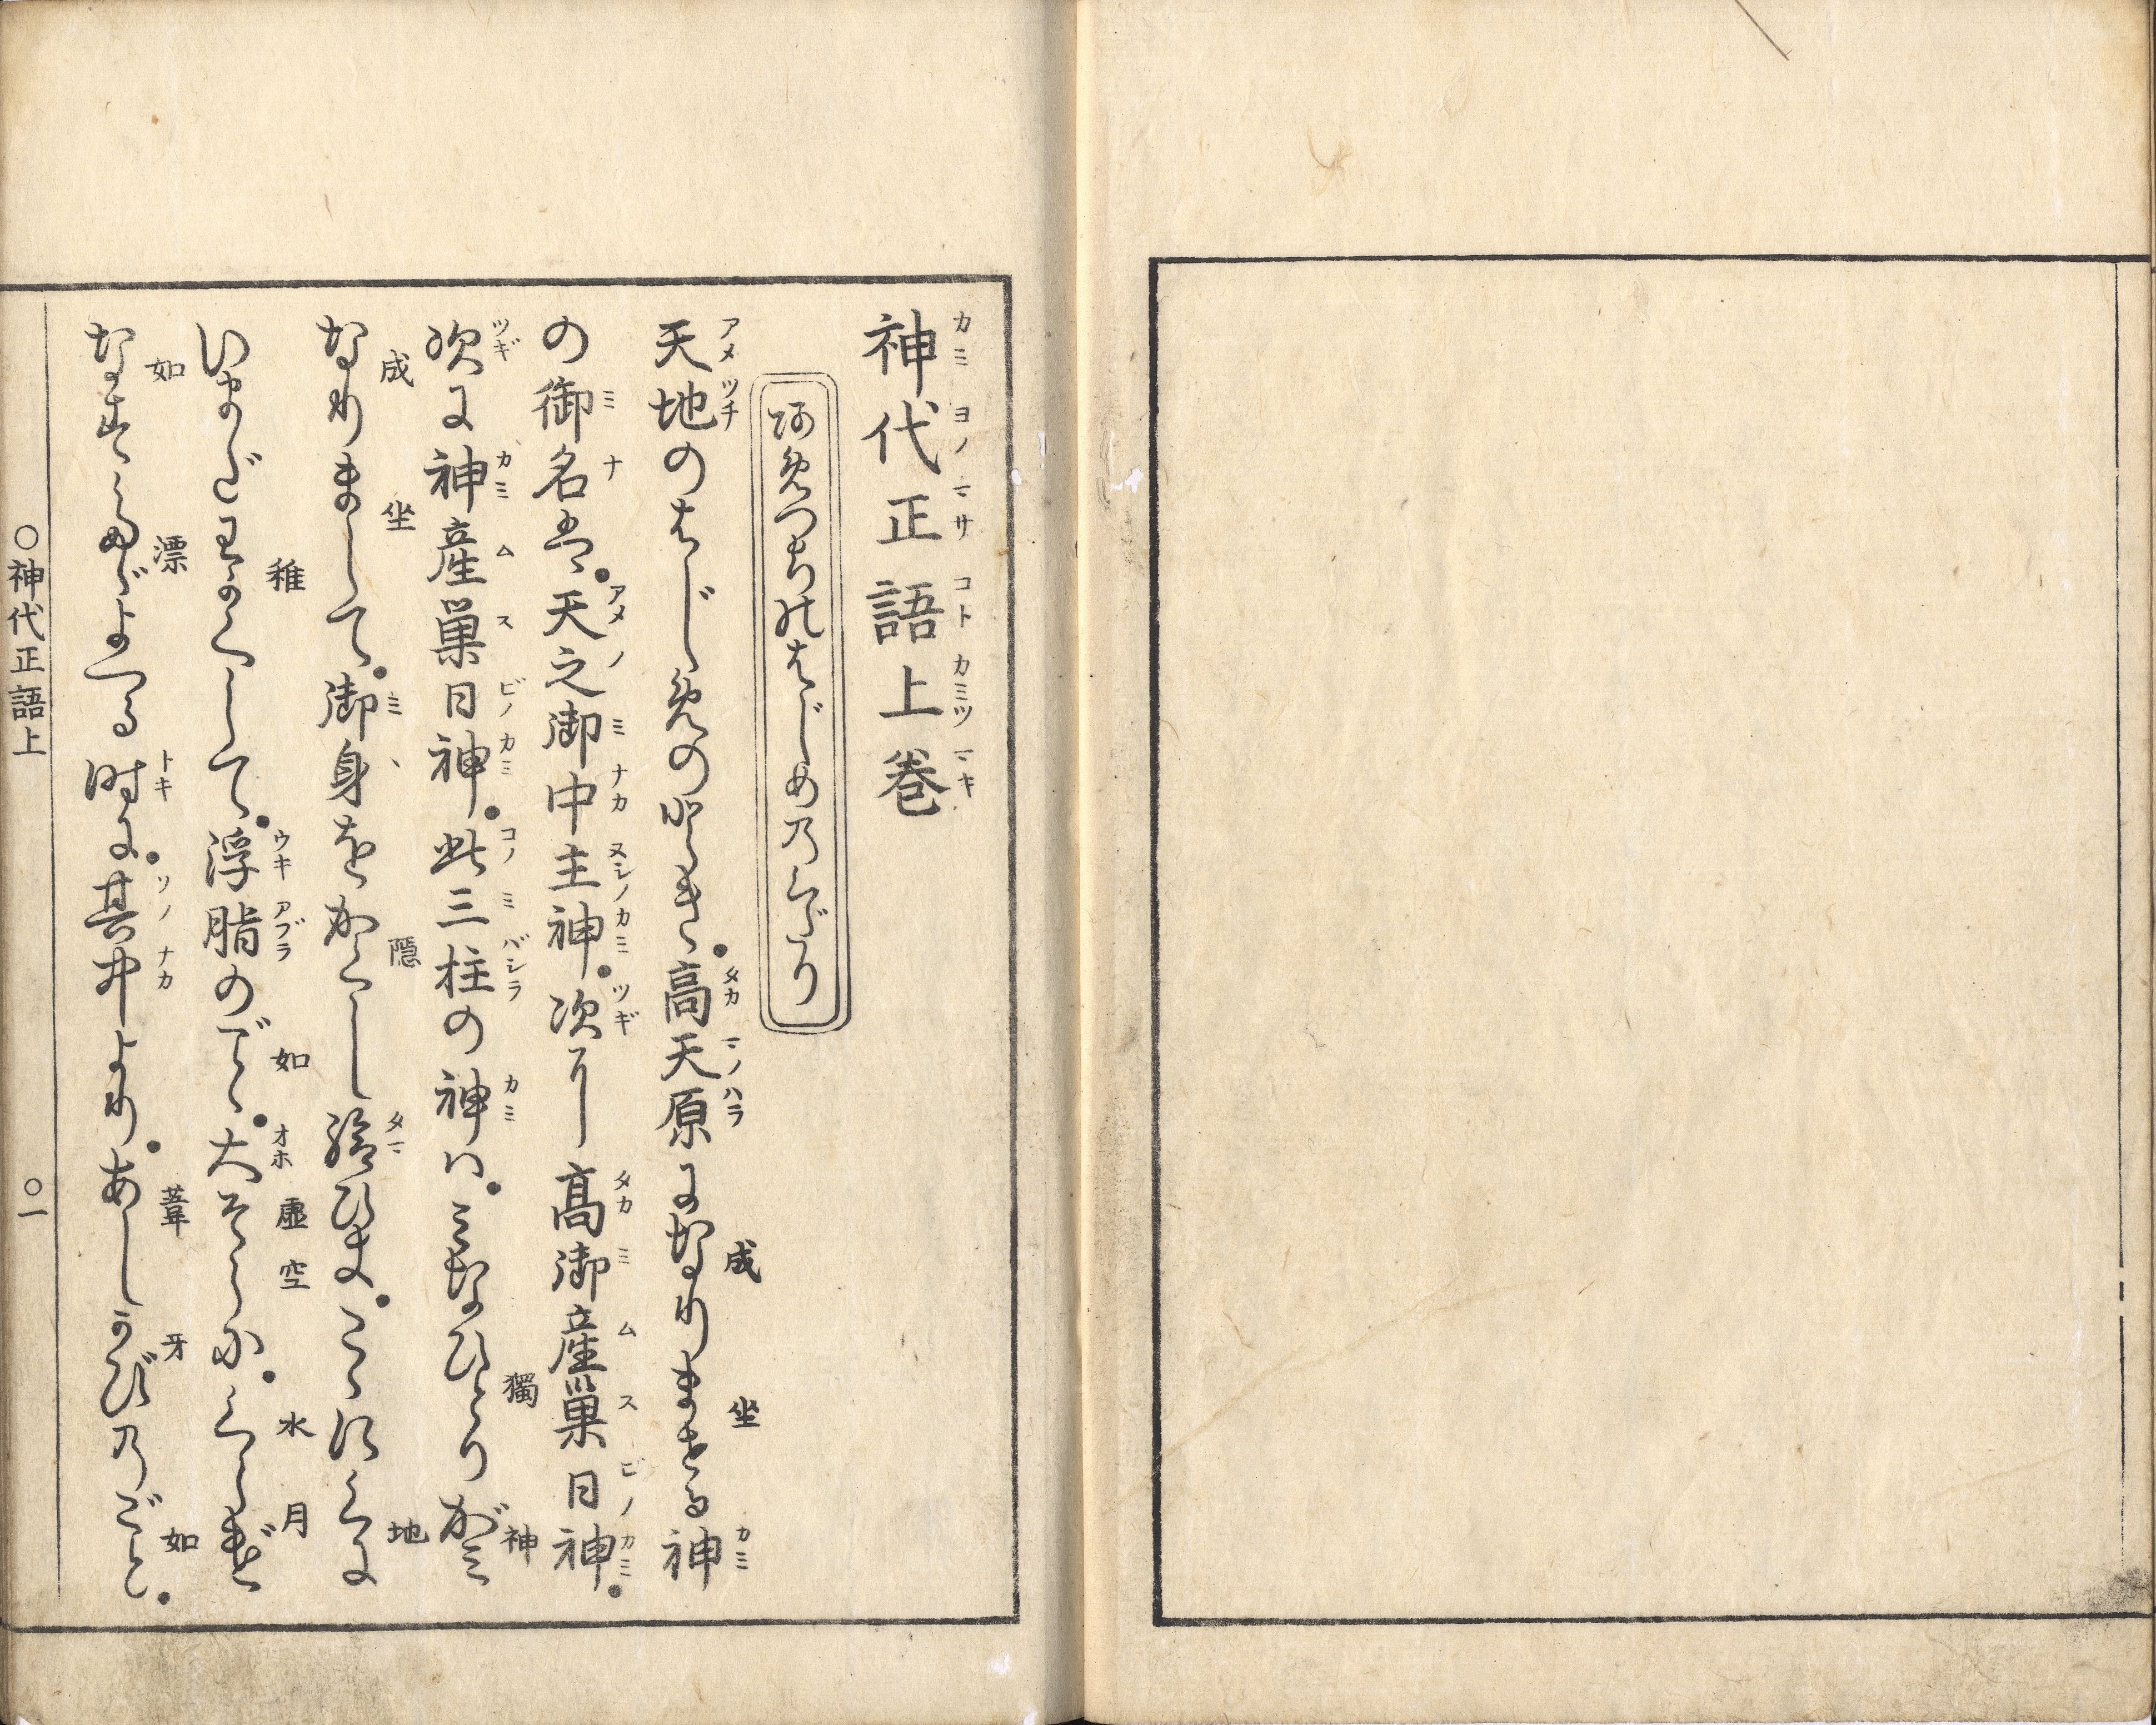 神代正語上巻
阿めつちのはじめのくだり
天地のはじめのとき、高天原になりませる神
の御名は、天之御中主神、次に高御産巣日神、
次に神産巣日神、此三柱の神は、みなひとりがみ
なりまして、御身をかくし給ひき、こゝにくに
いまだわかくして、浮脂のごと、大そらに、くらげ
なすたゞよへる時に、其中より、あしかびのごと、
○神代正語上
○一